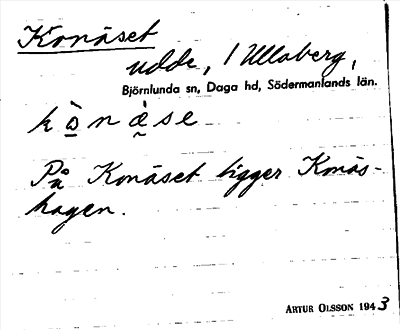 Konäset
udde, / Ullaberg,
Björnlunda sn, Daga hd, Södermanlands län.
kò̱nä̀se
På Konäset ligger Konäs-
hagen.
ARTUR OLSSON 1943